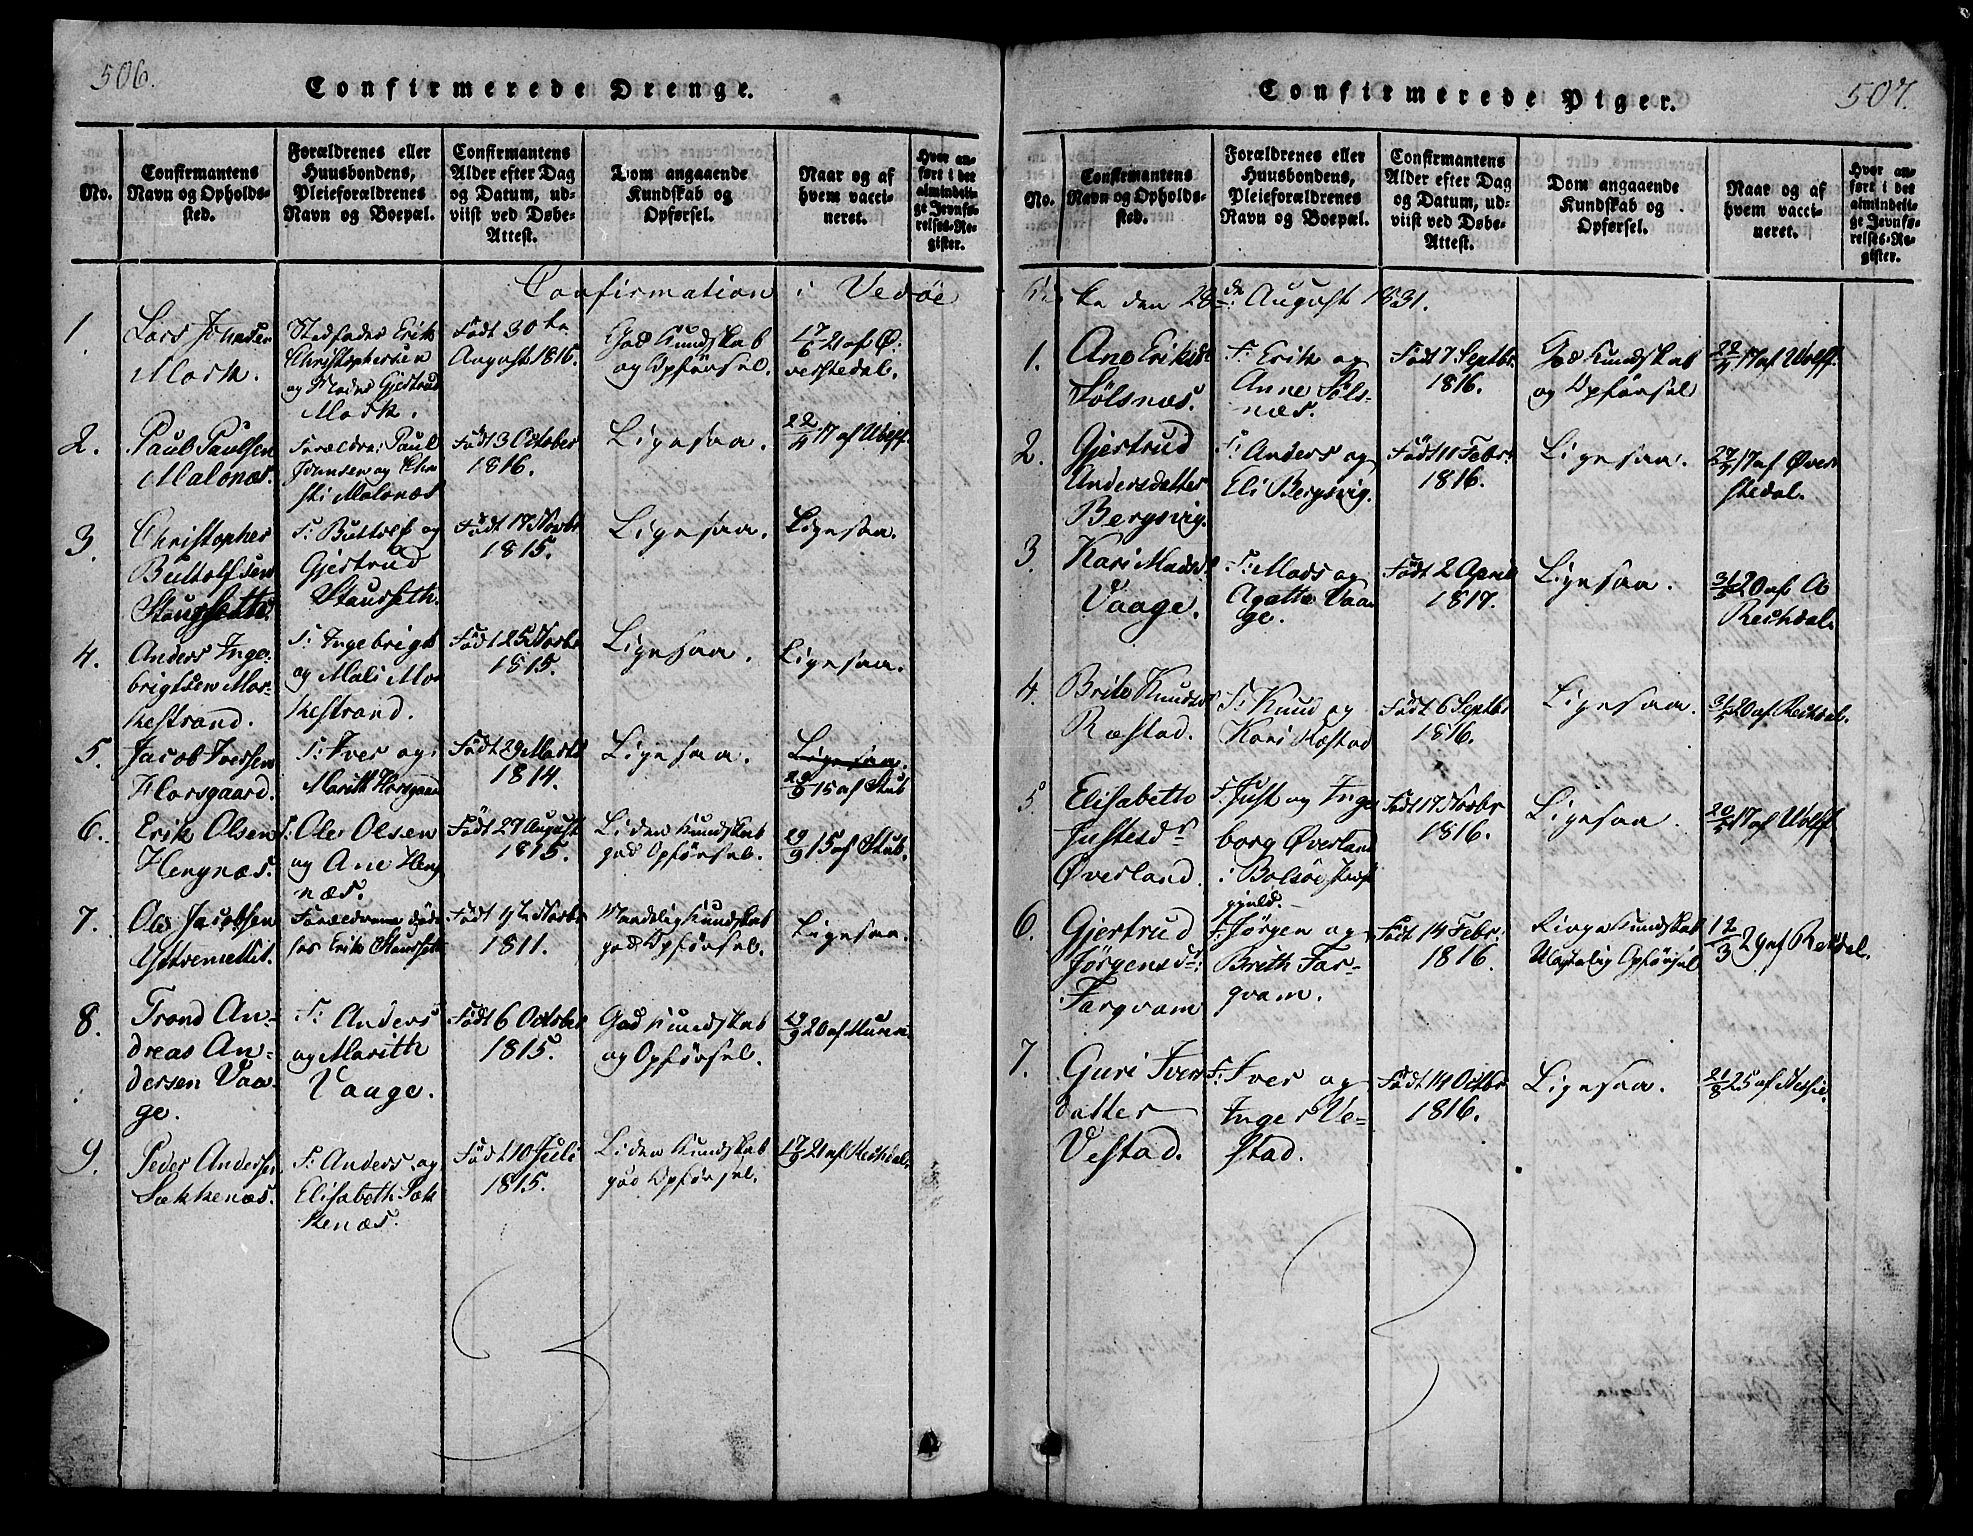 506.
Confirmerede Drenge.
No.
Confirmantens
Navn og Opholds-
sted.
Forældrenes eller
Huusbondens,
Pleieforældrenes
Navn og Boepæl.
Confirmantens
Alder efter Dag
og Datum, ud-
viist ved Døbe-
Attest.
Dom angaaende
Kundskab og
Opførsel.
Naar og af
hvem vacci-
neret.
Hvor an-
ført i det
almindeli-
ge Jevnfø-
relses-Re-
gister.
Confirmation i Vedöe
1.
Lars Jonsen
Mork.
Stedfader Erik
Christophersen
og Moder Gjertrud
Mork.
Födt 30te
August 1816.
God Kundskab
og Opförsel.
17/6 21 af Ø-
verstedal.
2.
Paul Paulsen
Malonæs.
Forældre: Paul
Jonsen og
sti Malonæs
Födt 3 October
1816.
Ligesaa.
22/4 17 af Wolff.
3.
Christopher
Buttolfsen
F: Buttolf og
Gjertrud
Staurseth.
Födt 17 Novbr
1815.
Ligesaa.
Ligesaa.
4.
Anders Inge-
brigtsen Mor-
kestrand.
F: Ingebrigt
og Mali Mor
kestrand.
Födt 25 Novbr
1815.
Ligesaa.
Ligesaa.
5.
Jacob Iversen
Horsgaard.
F: Iver og
Marith Horsgaar
Födt 29 Marts
1814.
Ligesaa.
Ligesaa.
29/9 15 af Stub
6.
Erik Olsen
Hengnæs.
F: Ole Olsen
og Ane Heng
næs.
Födt 27 August
1815.
Liden Kundskab
god Opförsel.
29/9 15 af Stub.
7.
Ole Jacobsen
Forældrene döde
Erik Staurseth
Födt Novbr
1811.
Maadelig Kundskab
god Opförsel.
Ligesaa.
8.
Trond An-
dreas An-
dersen Vaa-
ge.
F: Anders
og Marith
Vaage.
Födt 6 October
1815.
God Kundskab
og Opförsel.
20 af Munn
9.
Peder Anders
Sækkenæs.
F: Anders og
Elisabeth Sæk
kenæs.
Födt 10 Juli
1815.
Liden Kundskab
god Opförsel.
17/9 21 af Rechdal.
507.
Confirmerede Piger.
No.
Confirmantens
Navn og Opholds-
sted.
Forældrenes eller
Huusbondens,
Pleieforældrenes
Navn og Boepæl.
Confirmantens
Alder efter Dag
og Datum, ud-
viist ved Døbe-
Attest.
Dom angaaende
Kundskab og
Opførsel.
Naar og af
hvem vacci-
neret.
Hvor an-
ført i det
almindeli-
ge Jevnfø-
relses-Re-
gister.
Kirke den 28de August 1831.
1.
Ane Eriksdr
Sölsnæs.
F: Erik og
Anne Söls-
næs.
Födt 7 Septbr.
1816.
God Kundskab
og Opförsel
22/4 17 af Wolff.
2.
Gjertrud
Andersdatter
Bergsvig.
F: Anders og
Eli Bergsvig.
Födt 11 Febr.
1816.
Ligesaa.
17 af Øver
stedal.
3.
Kari Madsd
Vaage.
F: Mads og
Agatte Vaa
ge.
Födt 2 April
1817.
Ligesaa.
20 af
Rechdal.
4.
Brite Knudsd
Ræstad.
F: Knud og
Kari Ræstad
Födt 6 Septbr
1816.
Ligesaa.
20 af Rechdal.
5
Elisabeth
Justesdr
Øverland.
F: Just og Inge
borg Øverland
i Bolsöe Præst
gjeld.
Födt 17 Novbr
1816.
Ligesaa.
17 af Wolff.
6.
Gjertrud
Jörgensdr:
Fargvam
F: Jörgen og
Brith Far-
gvam.
Födt 14 Febr.
1816.
Ringe Kundskab
Opförsel
12/3 29 af Rechdal.
7.
Guri Ivers
datter
Vestad.
F: Iver og
Inger Ve-
stad.
Födt 14 Octbr
1816.
Ligesaa.
21/8 25 af